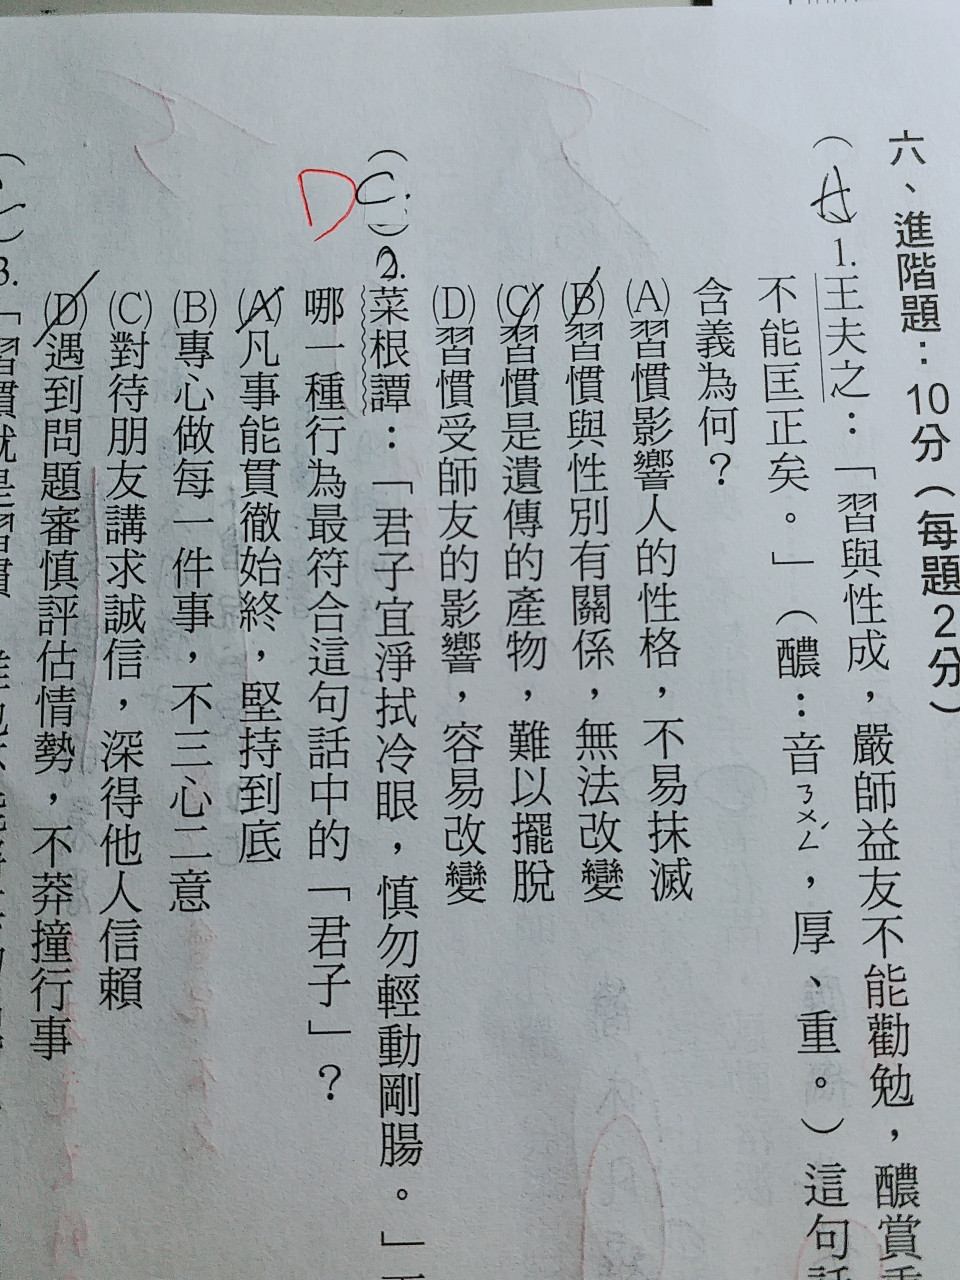 六、進階題：10分（每題2分）
（A）1.王夫之：「習與性成，嚴師益友不能勸勉，醲賞
不能匡正矣。」（醲：音ㄋㄨㄥˊ，厚、重。）這句
含義為何？
(A)習慣影響人的性格，不易抹滅
(B)習慣與性別有關係，無法改變
(C)習慣是遺傳的產物，難以擺脫
(D)習慣受師友的影響，容易改變
（C）2.菜根譚：「君子宜淨拭冷眼，慎勿輕動剛腸。」
D
哪一種行為最符合這句話中的「君子」？
(A)凡事能貫徹始終，堅持到底
(B)專心做每一件事，不三心二意
(C)對待朋友講求誠信，深得他人信賴
(D)遇到問題審慎評估情勢，不莽撞行事
3.「習慣就是習慣